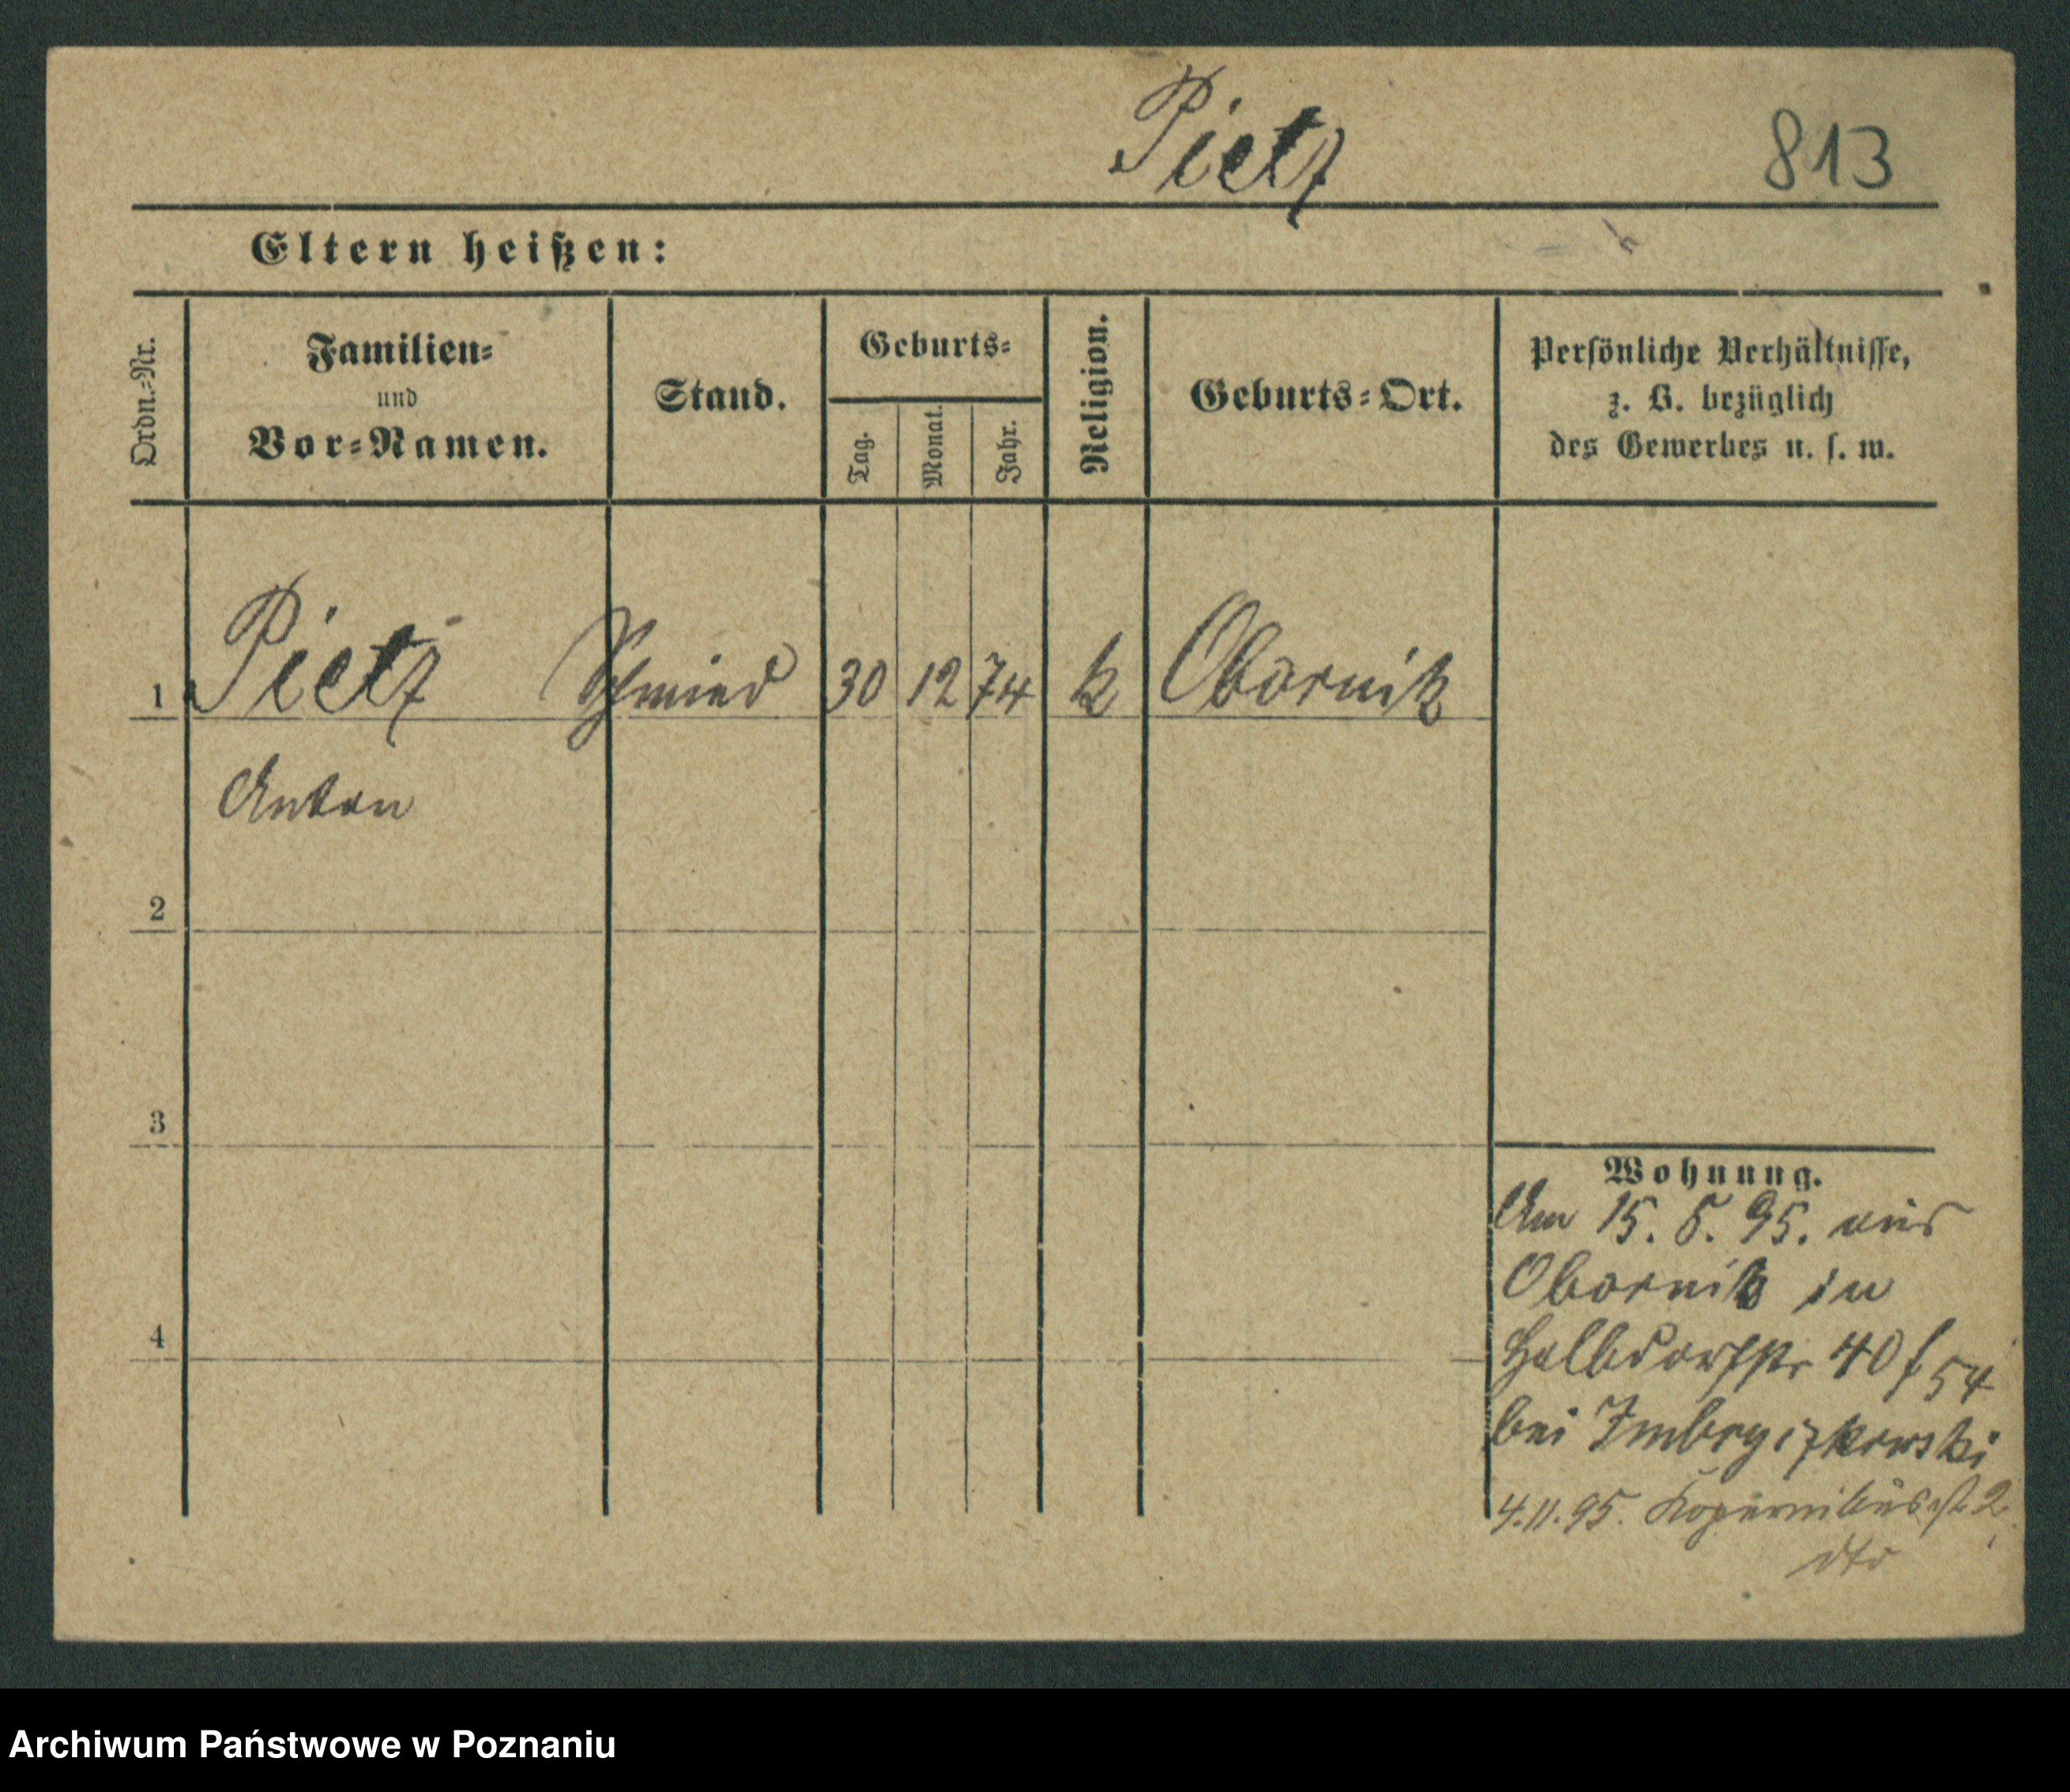 Pietz 813
Eltern heißen:
Ordn.-Nr.
Familien-
und
Vor-Namen.
Stand.
Geburts-
Tag.
Monat.
Jahr.
Religion.
Geburts-Ort.
Persönliche Verhältnisse,
z. B. bezüglich
des Gewerbes u. s. w.
1 Pietz Schmied 30 12 74 k Obornik
Anton
2
3
4
Wohnung.
Am 15. 5. 95. aus
Obornik in
Halbdorfstr 40 f 54
bei
4.11.95. Kopernikusstr 2
dto
Archiwum Państwowe w Poznaniu